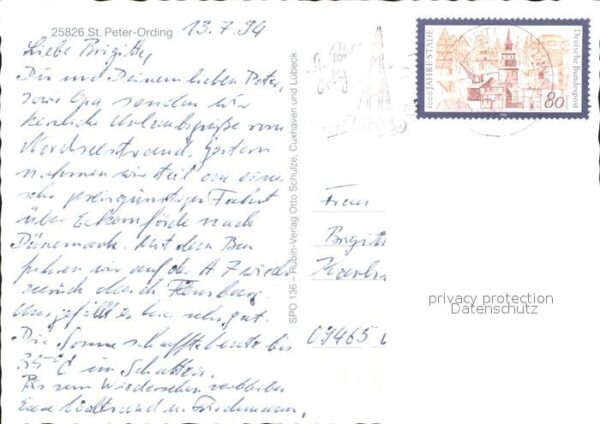 25826 St. Peter-Ording 13.7.94
Liebe Brigitte,
Dir und Deinem lieben Peter,
sowie Opa senden wir
herzliche Urlaubsgrüße vom
Nordseestrand. Gestern
nahmen wir teil an einer
sehr preisgünstigen Fahrt
über Eckernförde nach
Dänemark. Mit dem Bus
fuhren wir auf der A 7 wieder
zurück durch Flensburg.
Uns gefällt es hier sehr gut.
Die Sonne schaffte heute bis
35°C im Schatten.
Bis zum Wiedersehen verbleiben
Eure u. Friedemann,
SPO 136 - Rubin-Verlag Otto Schulze, Cuxhaven und Lübeck
1000 JAHRE STADE
Deutsche Bundespost
80
Frau
Brigitt
09465
privacy protection
Datenschutz